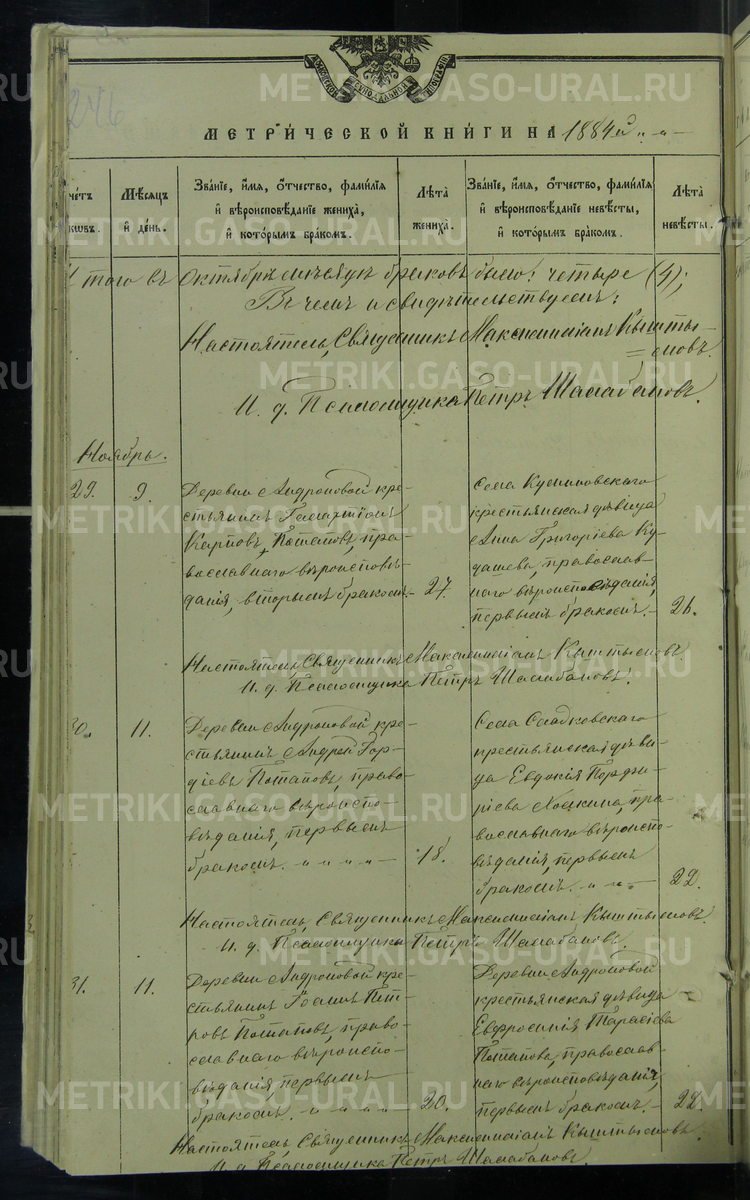 246
МЕТРИЧЕСКОЙ КНИГИ НА 1884й
счетъ браковъ.
Мѣсяцъ и день.
Званіе, имя, отчество, фамилія и вѣроисповѣданіе жениха, и которымъ бракомъ.
Лѣта жениха.
Званіе, имя, отчество, фамилія и вѣроисповѣданіе невѣсты, и которымъ бракомъ.
Лѣта невѣсты.
того въ Октябрѣ мѣсяцѣ браковъ было: четыре (4);
Въ чемъ и свидѣтельствуемъ:
Настоятель, Священникъ Максимиліанъ Кышты-
мовъ.
И. д. Псаломщика Петръ Шалабановъ.
Ноябрь.
29.
9.
Деревни Андроновой кре-
стьянинъ
Карповъ Потаповъ, пра-
вославнаго вѣроисповѣ-
данія, вторымъ бракомъ.
27.
Села
крестьянская дѣвица
Анна Григоріева Ку-
дашева, православ-
наго вѣроисповѣданія,
первымъ бракомъ.
26.
Настоятель, Священникъ Максимиліанъ Кыштымовъ.
И. д. Псаломщика Петръ Шалабановъ.
30.
11.
Деревни Андроновой кре-
стьянинъ Андрей Гор-
діевъ Потаповъ, право-
славнаго вѣроиспо-
вѣданія, первымъ
бракомъ.
18.
Села Сладковскаго
крестьянская дѣви-
ца Евдокія Порфи-
ріева пра-
вославнаго вѣроиспо-
вѣданія, первымъ
бракомъ.
22.
Настоятель, Священникъ Максимиліанъ Кыштымовъ.
И. д. Псаломщика Петръ Шалабановъ.
31.
11.
Деревни Андроновой кре-
стьянинъ Іоаннъ Пет-
ровъ Потаповъ, право-
славнаго вѣроиспо-
вѣданія, первымъ
бракомъ.
20.
Деревни Андроновой
крестьянская дѣвица
Евфросинія Тарасіева
Потапова, православ-
наго вѣроисповѣданія,
первымъ бракомъ.
22.
Настоятель, Священникъ Максимиліанъ Кыштымовъ.
И. д. Псаломщика Петръ Шалабановъ.
METRIKI.GASO-URAL.RU